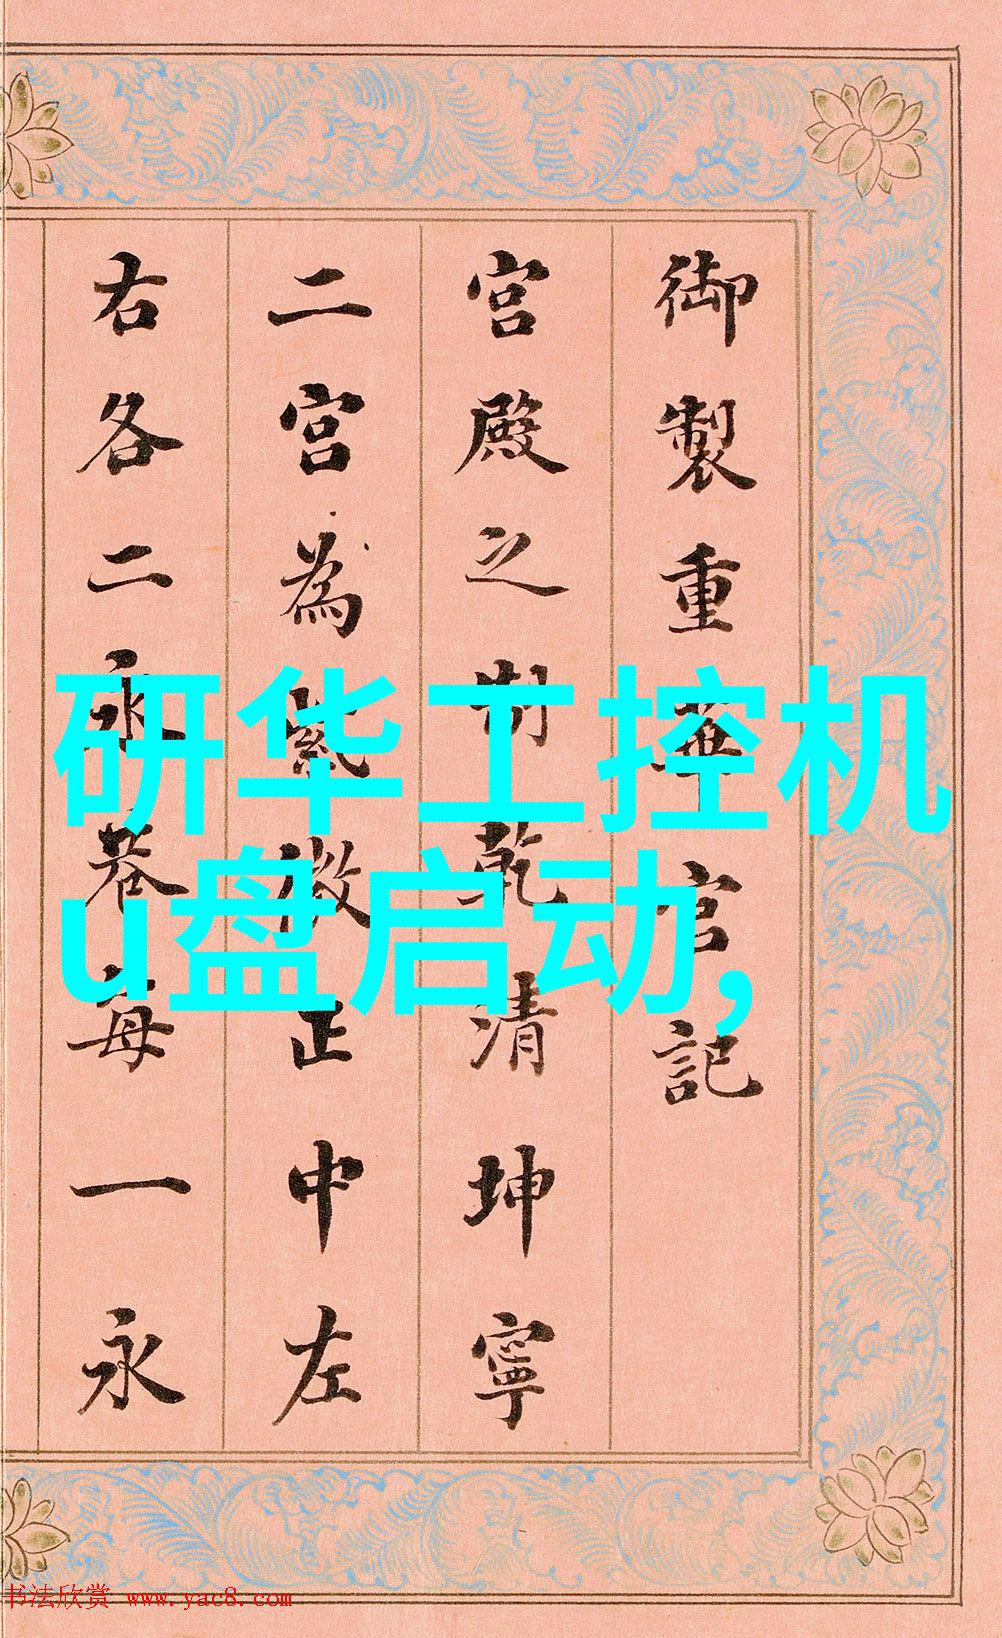 御製重華宮記
宮殿之制乾清坤寧
二宮為紫微正中左
右各二永巷每一永
研华工控机
u盘启动,
书法欣赏 www.yac8.com